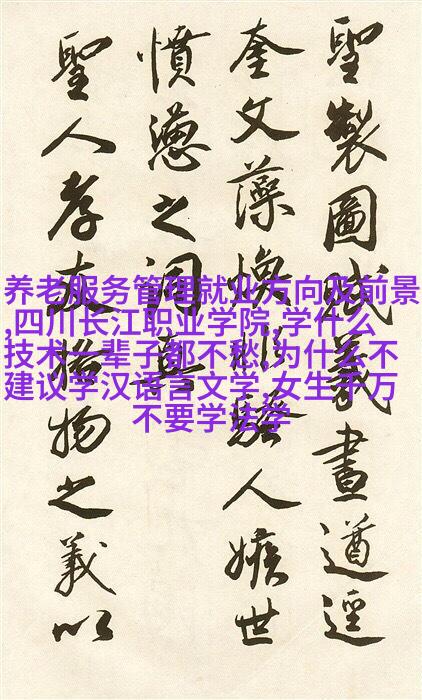 聖製圖賦義畫遒逕
奎文藻煥騷人嫉世
憤懣之
聖人孝格物之義以
养老服务管理就业方向及前景
,四川长江职业学院,学什么
技术一辈子都不愁,为什么不
建议学汉语言文学,女生千万
不要学法学